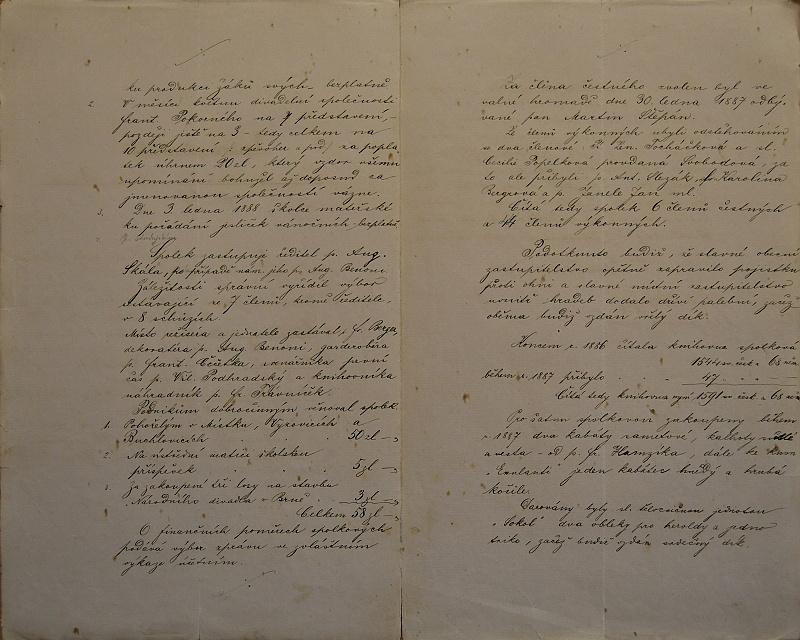 ku produkci žáků svých - bezplatně
2. V měsíci květnu divadelní společnosti
Frant. Pokorného na 7 představení, -
později ještě na 3 - tedy celkem na
10 představení za popla-
tek úhrnem 20 zl, který vzdor všemu
upomínání bohužel až doposud za
jmenovanou společností vázne.
3. Dne 3. ledna 1888 školce mateřské
ku pořádání jeslíček vánočních - bezplatně
Spolek zastupuje ředitel p. Aug.
Skála, po případě nám. jeho p. Aug. Benoni.
Záležitosti správní vyřídil výbor
sestávající ze 7 členů, kromě ředitele,
v 8 schůzích.
Místo režiséra a jednatele zastával p. Fr.
dekoratéra p. Aug. Benoni, garderobéra
p. Frant. Čečetka, pokladníka první
čas p. Vil. Podhradský a knihovníka
náhradník p. Fr. Trávníček.
Podnikům dobročinným věnoval spolek.
1. Pohořelým v Místku, Vyzovicích a
Buchlovicích . . 50 zl -
2. Na ústřední matici školskou
příspěvek . . . 5 zl -
3. Za zakoupené tři losy na stavbu
"Národního divadla v Brně" . 3 zl -
Celkem 58 zl -
O finančních poměrech spolkových
podává výbor zprávu ve zvláštním
výkaze účetním.
Za člena čestného zvolen byl ve
valné hromadě dne 30. ledna 1887 odbý-
vané pan Martin Štěpán.
Z členů výkonných ubyli odstěhováním
se dva členové: p. Fr. Procháčková a sl.
Cecilie Popelková provdaná Svobodová, za
to ale přibyli p. Ant. Slezák, Karolina
Bergrová a p. Žanele Jan ml.
Čítá tedy spolek 6 členů čestných
a 44 členů výkonných.
Podotknuto budiž, že slavné obecní
zastupitelstvo opětně zapravilo pojistku
proti ohni a slavné místní zastupitelstvo
vnitř hradeb dodalo dříví palební, začež
oběma budiž vzdán vřelý dík.
Koncem r. 1886 čítala knihovna spolková
1544 sv. česk. a 68 něm.
během r. 1887 přibylo . . 47 . . . -
Čítá tedy knihovna nyní 1591 sv. česk. a 68 něm.
Pro šatnu spolkovou zakoupeny během
r. 1887 dva kabáty sametové, kalhoty
a vesta - od p. Fr. Hamzíka, dále ke kusu
"Exulanti" jeden kabátec hnědý a hrubá
košile.
Darovány byly sl. tělocvičnou jednotou
"Sokol" dva obleky pro heroldy a jedno
triko, začež budiž vzdán srdečný dík.